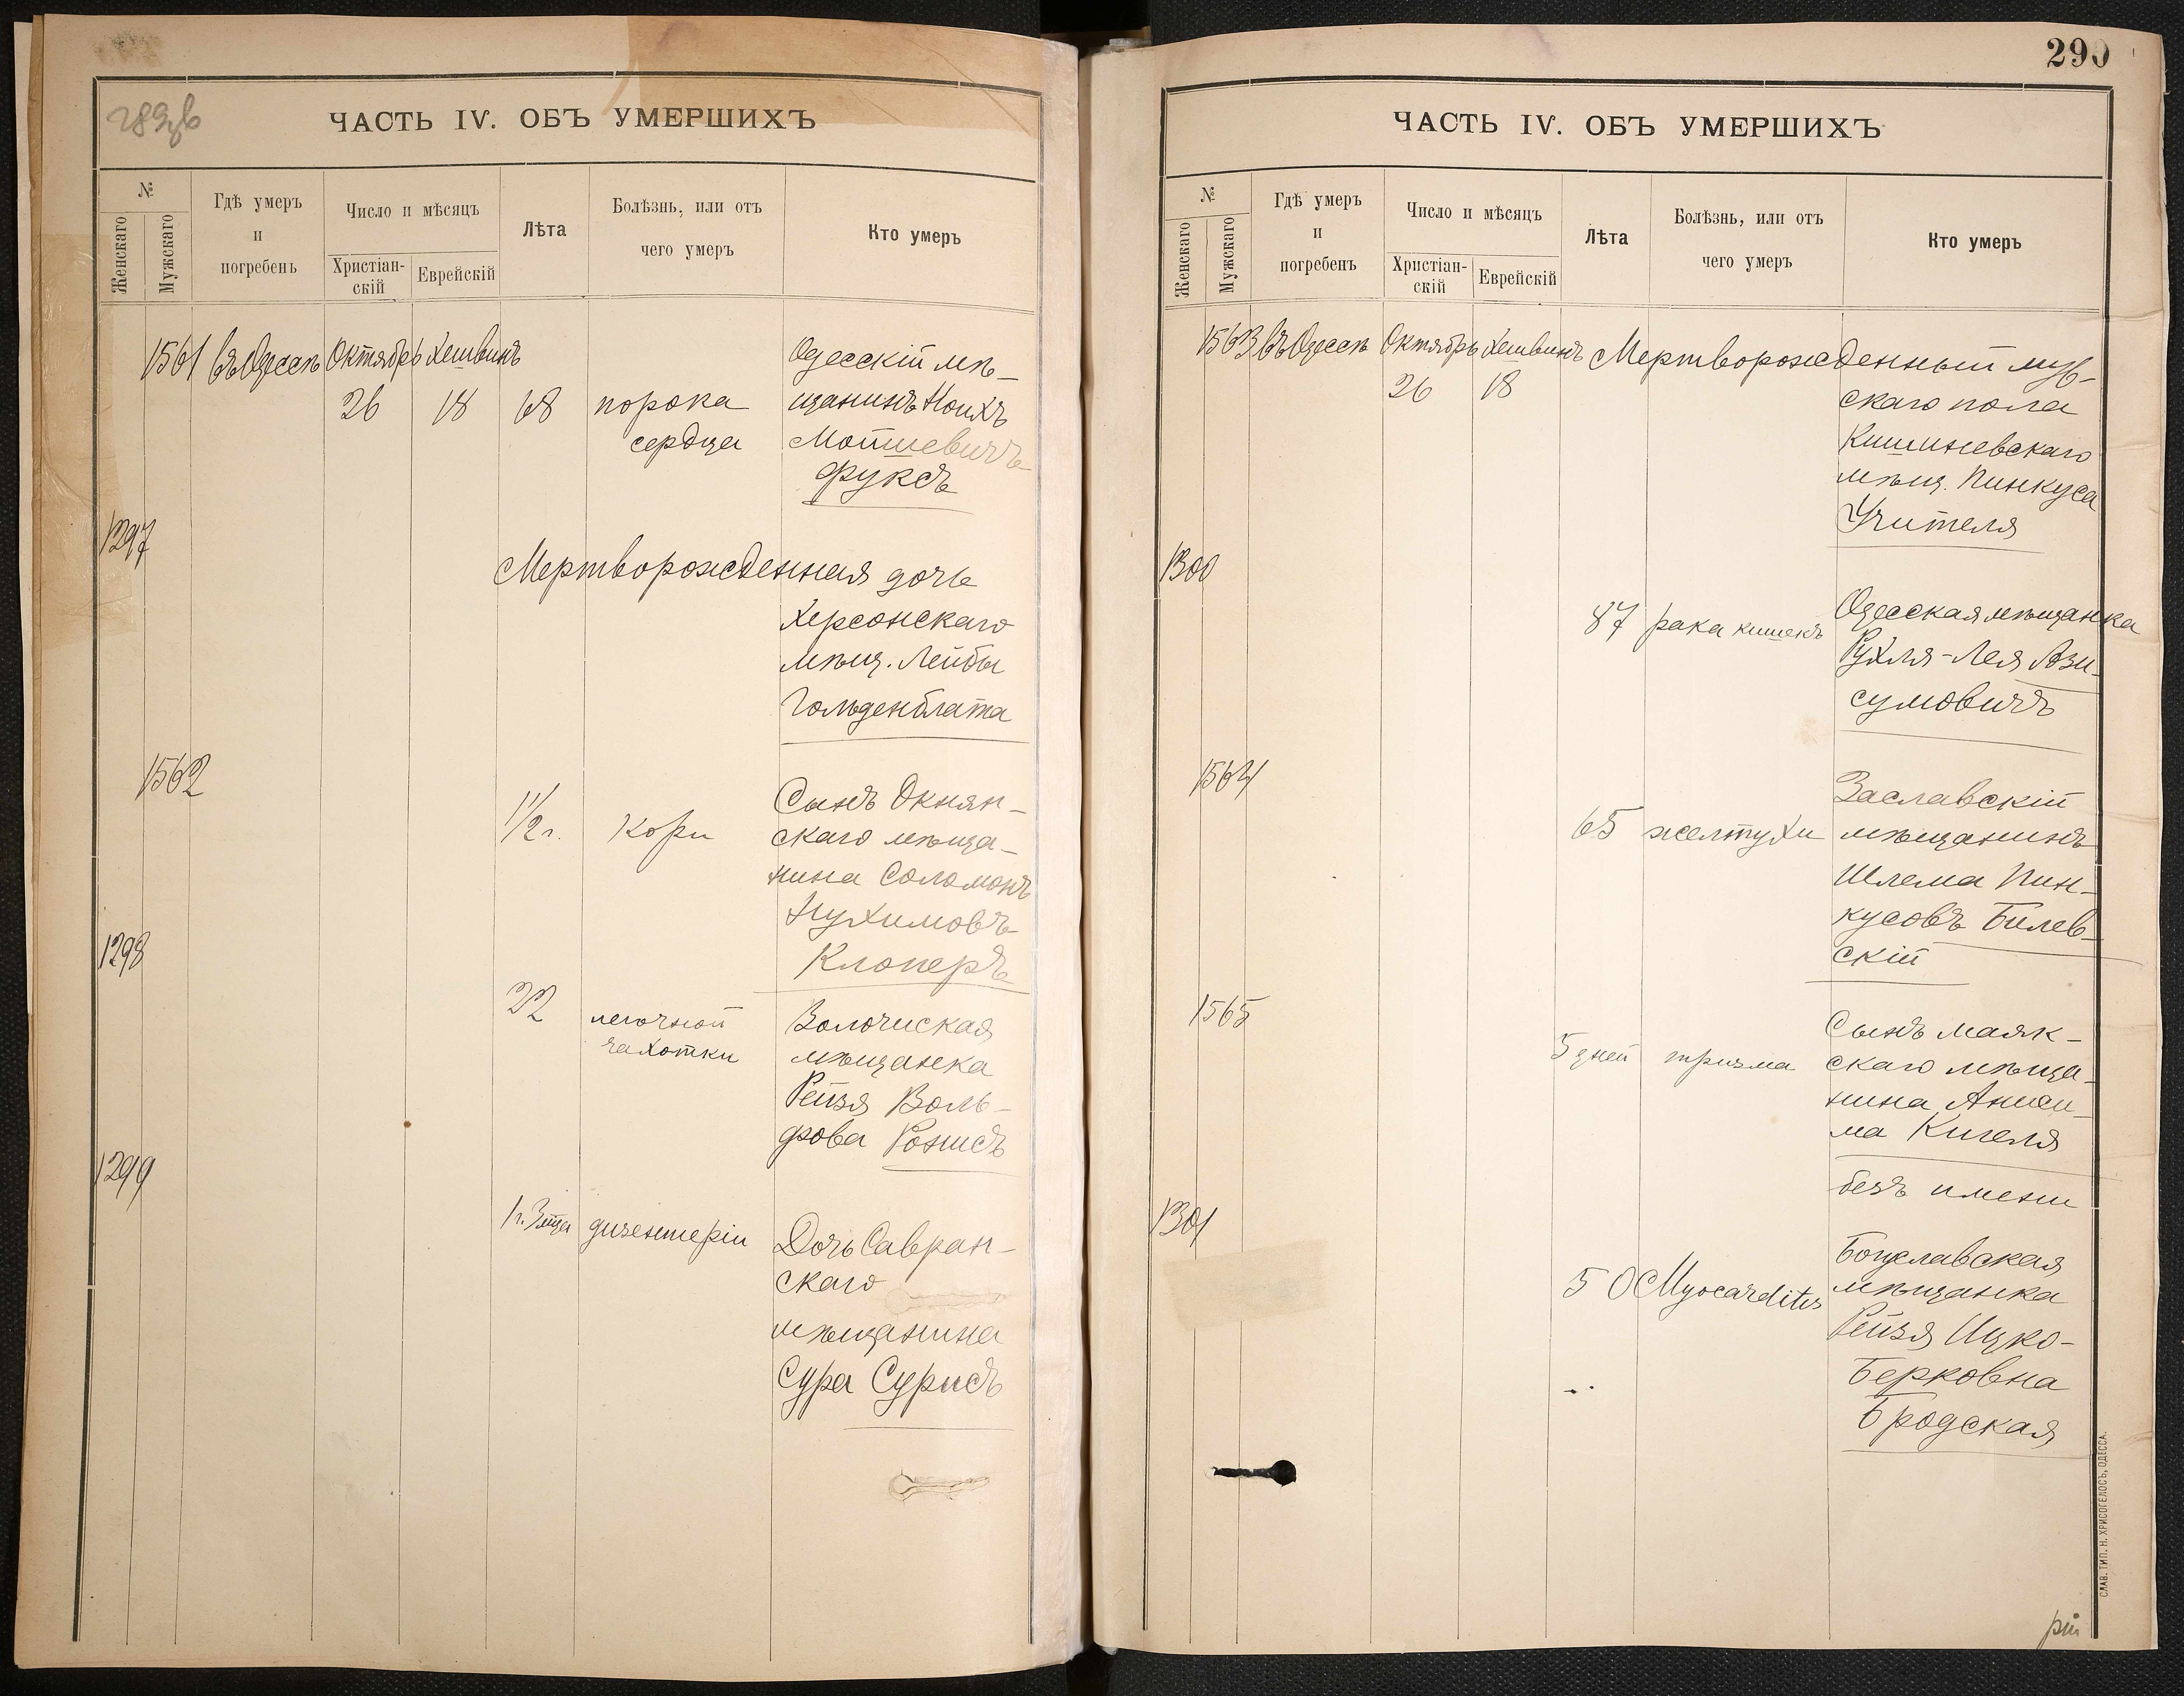 289об
ЧАСТЬ IV. ОБЪ УМЕРШИХЪ
№
Женскаго
Мужскаго
Гдѣ умеръ
и
погребенъ
Число и мѣсяцъ
Христіан-
скій
Еврейскій
Лѣта
Болѣзнь, или отъ
чего умеръ
Кто умеръ
1561 въ Одессѣ Октябрь Хешвинъ Одесскій мѣ-
26 18 68 порока щанинъ Ноихъ
сердца Мотшевичъ
Фуксъ
1297
Мертворожденная дочь
Херсонскаго
мѣщ. Лейбы
Гольденблата
1562
1 1/2 г. кори Сынъ Окнян-
скаго мѣща-
нина Соломонъ
Нухимовъ
Клоперъ
1298
22 легочной Волочиская
чахотки мѣщанка
Рейзя Воль-
фова Ронисъ
1299
1 г. 3 мца дизентеріи Дочь Савран-
скаго
мѣщанина
Сура Сурисъ
290
ЧАСТЬ IV. ОБЪ УМЕРШИХЪ
№
Женскаго
Мужскаго
Гдѣ умеръ
и
погребенъ
Число и мѣсяцъ
Христіан-
скій
Еврейскій
Лѣта
Болѣзнь, или отъ
чего умеръ
Кто умеръ
1563 въ Одессѣ Октябрь Хешвинъ Мертворожденный муж-
26 18 скаго пола
Кишиневскаго
мѣщ. Пинкуса
Учителя
1300
87 рака кишекъ Одесская мѣщанка
Рухля-Лея Ази-
сумовичъ
1564
65 желтухи Заславскій
мѣщанинъ
Шлема Пин-
кусовъ Билев-
скій
1565
5 дней тризма Сынъ маяк-
скаго мѣща-
нина Аниси-
ма Кигеля
безъ имени
1301
50 Myocarditis Богуславская
мѣщанка
Рейзя Ицко-
Берковна
Бродская
СЛАВ. ТИП. Н. ХРИСОГЕЛОСЪ, ОДЕССА.